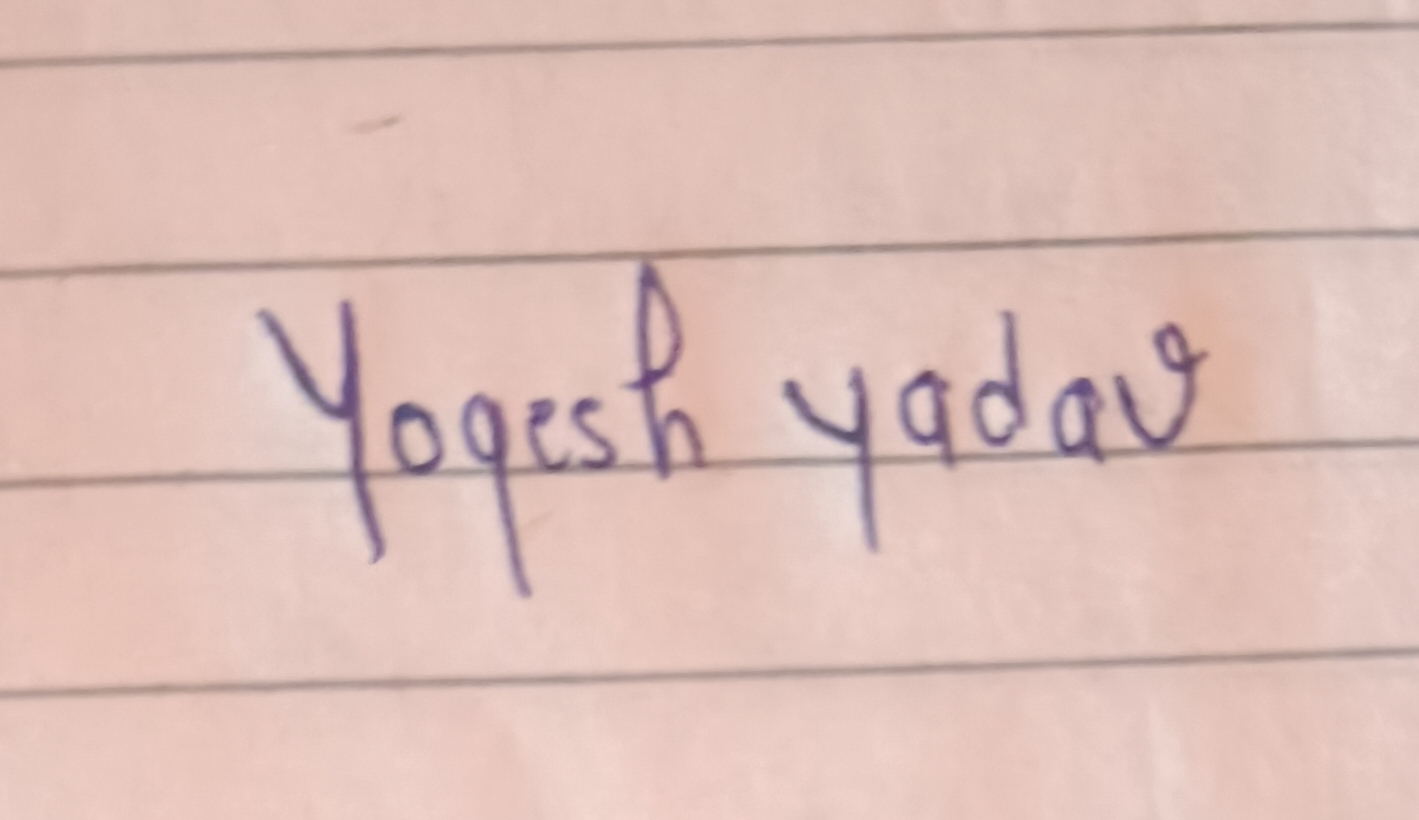 Yogesh yadav